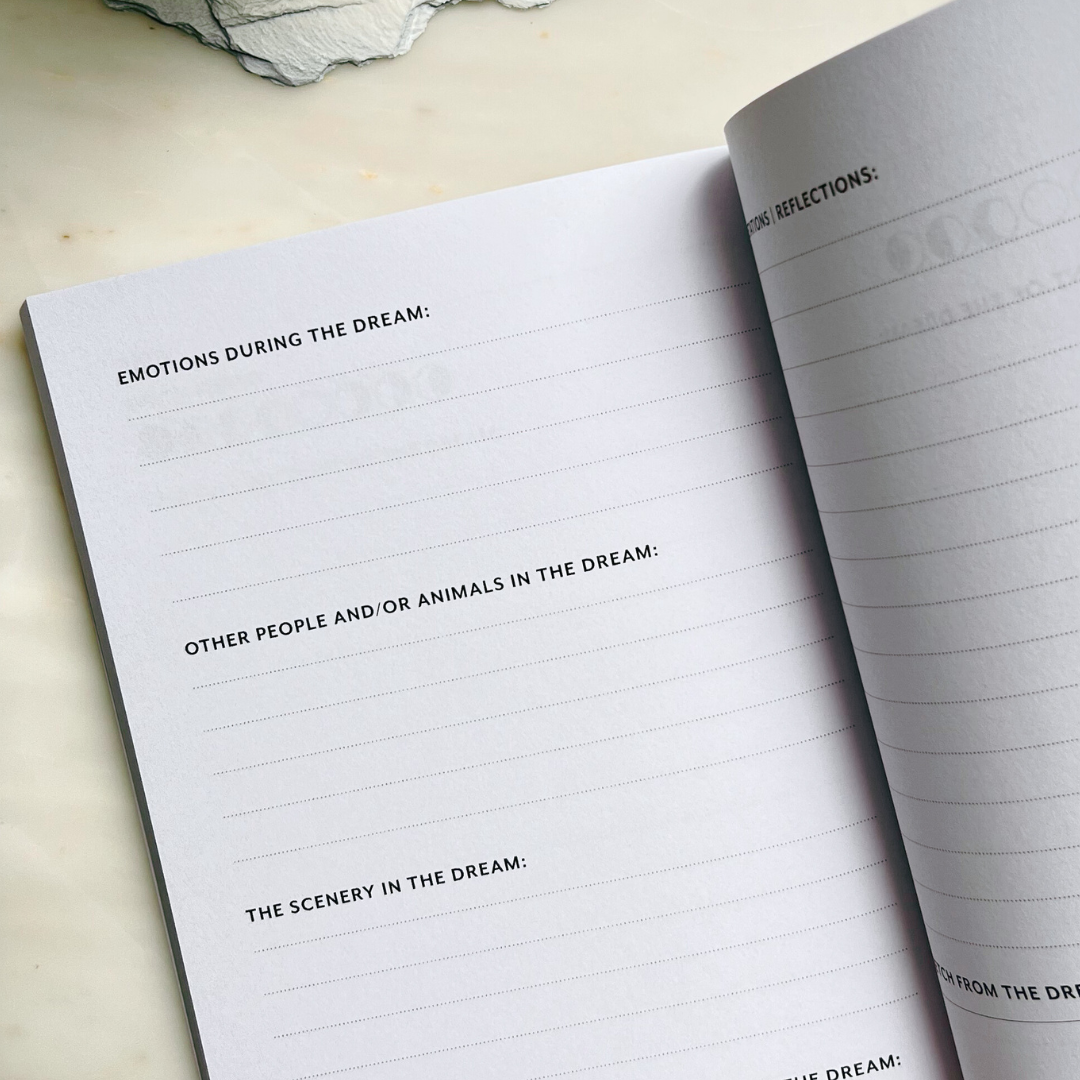 EMOTIONS DURING THE DREAM:
OTHER PEOPLE AND/OR ANIMALS IN THE DREAM:
THE SCENERY IN THE DREAM:
THE DREAM:
| REFLECTIONS:
FROM THE